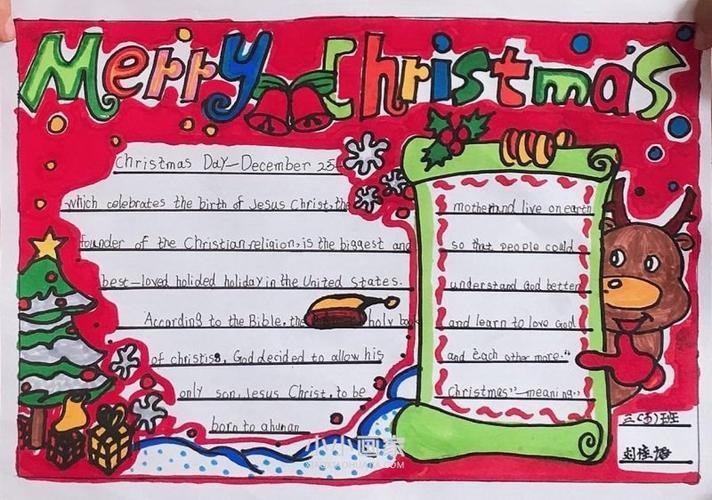 Merry Christmas
Christmas Day—December 25
which celebrates the birth of Jesus Christ, the
founder of the Christian religion, is the biggest and
best—loved holided holiday in the United States.
According to the Bible, the holy book
of christiss, God decided to allow his
only son, Jesus Christ, to be
born to a human
mother and live on earth
so that people could
understand God better
and learn to love God
and each other more."
Christmas" meaning"
三(5)班
小小画家